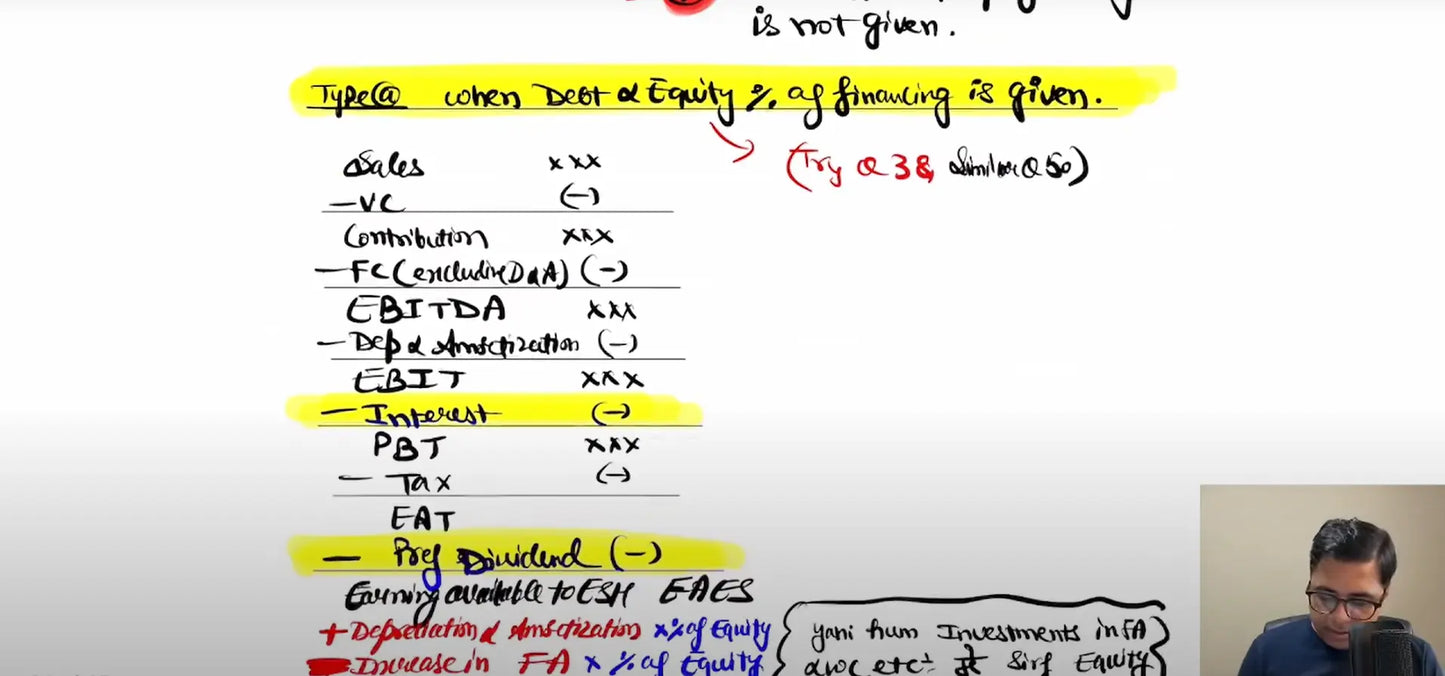 is not given.
Type@ when Debt & Equity % of financing is given.
(Try Q 38, Similar Q 50)
Sales xxx
- VC (-)
Contribution xxx
- FC (excludive D & A) (-)
EBITDA xxx
- Dep & Amortization (-)
EBIT xxx
- Interest (-)
PBT xxx
- Tax (-)
EAT
- Pref Dividend (-)
Earning available to ESH EAES
+ Depreciation & Amortization x % of Equity
Increase in FA x % of Equity
yani hum Investments in FA
& WC etc सिर्फ Equity